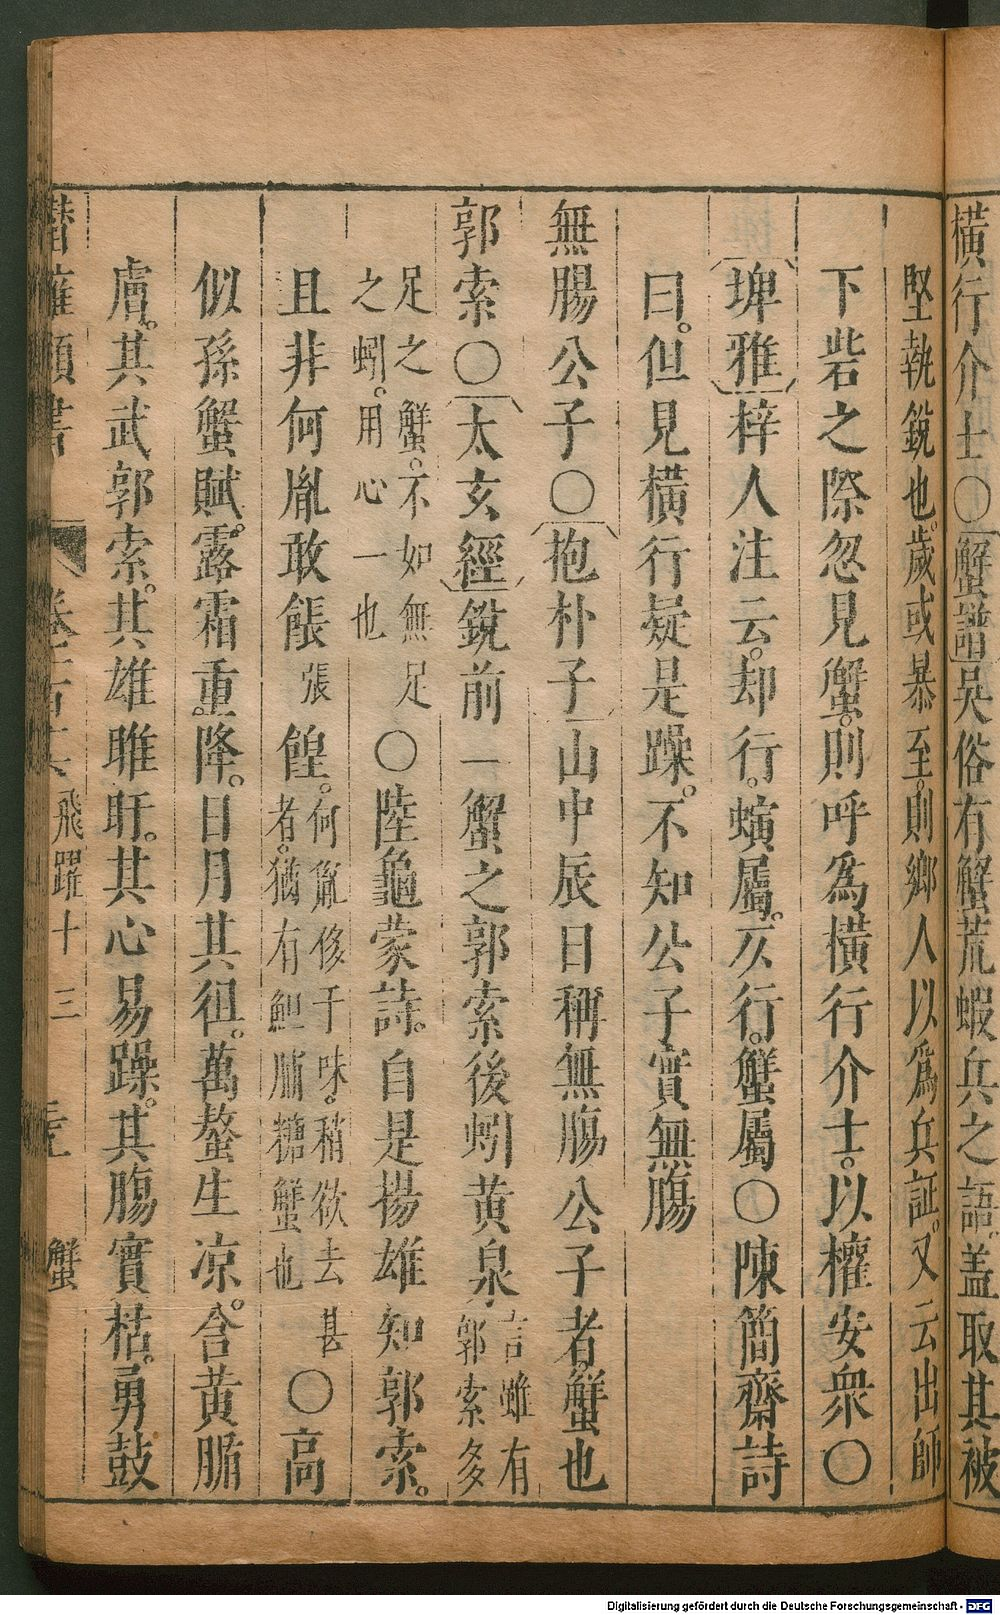 橫行介士○蟹譜吳俗有蟹荒蝦兵之語。盖取其被
堅執銳也。歲或暴至。則鄉人以爲兵証。又云出師
下砦之際忽見蟹。則呼爲橫行介士。以權安衆○
埤雅梓人注云。却行。螾屬。仄行。蟹屬○陳簡齋詩
曰。但見橫行疑是躁。不知公子實無膓
無膓公子○抱朴子山中辰日稱無膓公子者。蟹也
郭索○太玄經銳前一蟹之郭索後蚓黄泉言雖有郭索多
足之蟹。不如無足之蚓。用心一也○陸龜蒙詩。自是揚雄知郭索。
且非何胤敢餦張餭。何胤侈于味。稍欲去甚者。猶有䱇腊糖蟹也○高
似孫蟹賦。露霜重。降。日月其徂。萬螯生凉。含黄腯
膚。其武郭索。其雄睢盱。其心易躁。其膓實枯。勇鼓
潛確類書
飛躍十三
蟹
Digitalisierung gefördert durch die Deutsche Forschungsgemeinschaft - DFG